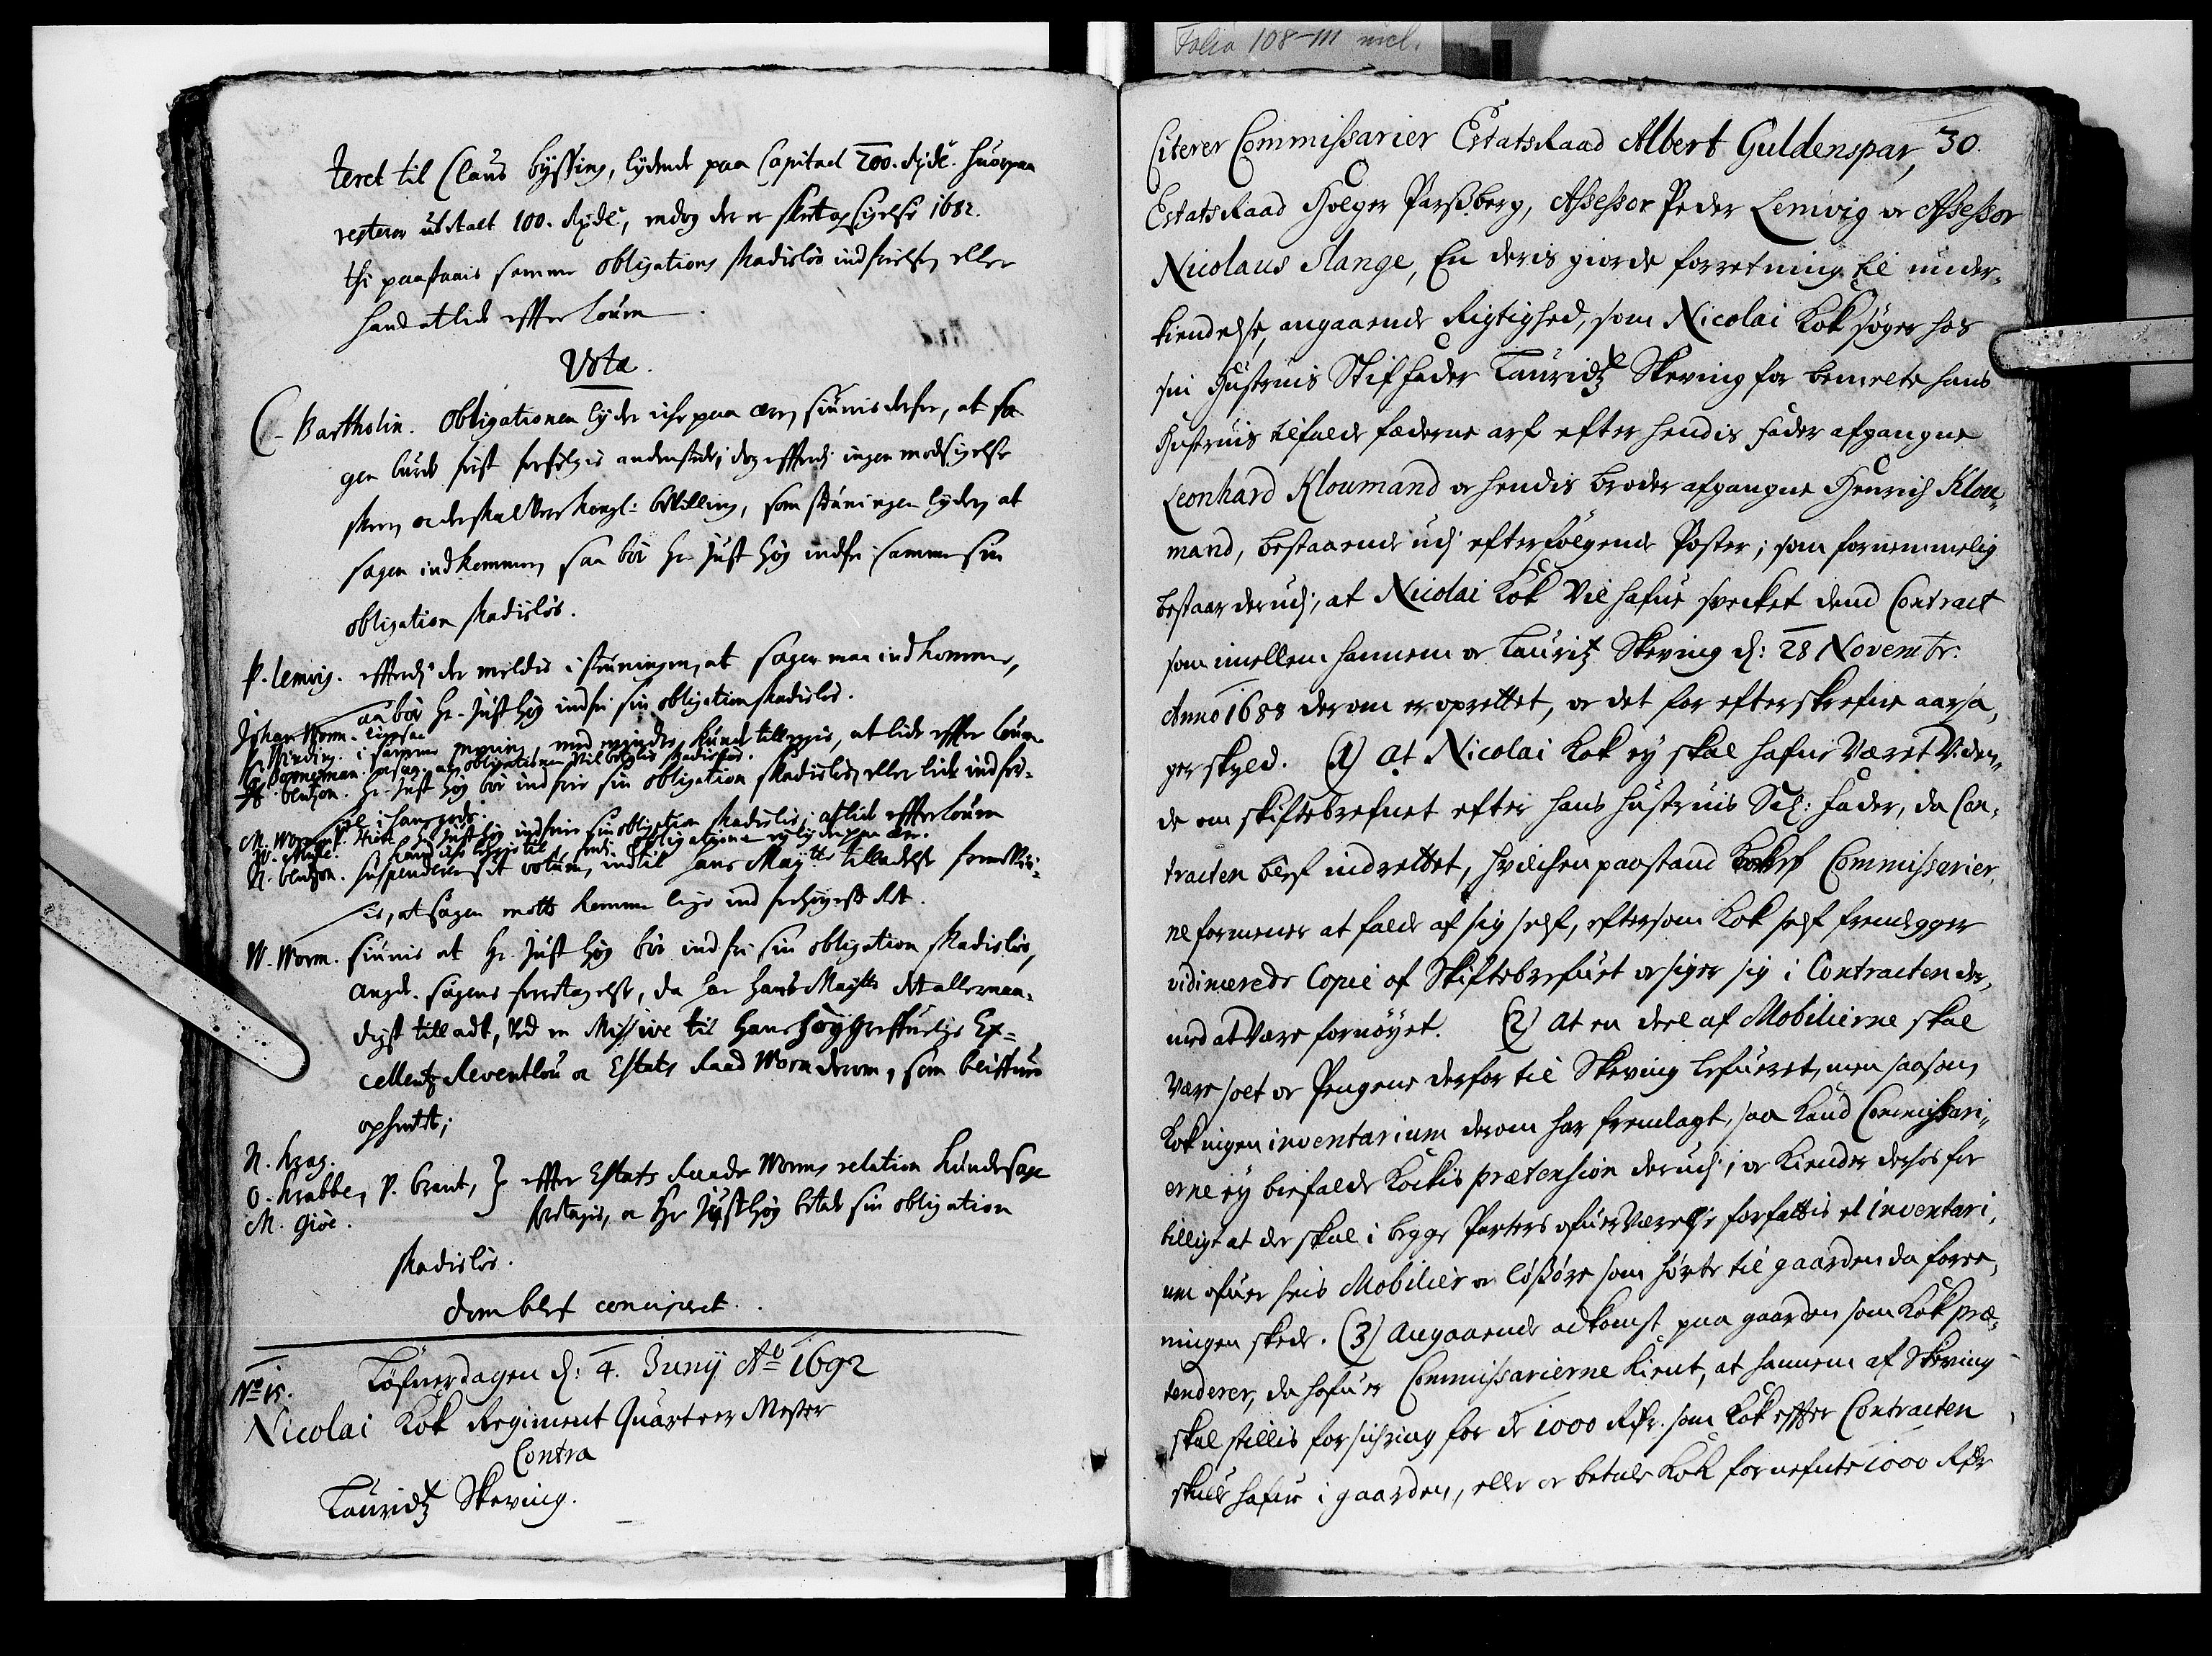 Folio 108-111 incl.
teret til Claus Byssing, lydende paa Capital 200. Rixdlr. huorpaa
resterer usbetalt 100. Rixdlr, endog der er skeet opsigelse 1682.
thi paastaais samme obligations skadisløs indfrielse, eller
hand at lide effter louen.
Vota.
C. Bartholin. Obligationen lyder iche paa ære, siunis derfor, at sa
gen burde først forfølgis andensteds; dog effterdj ingen modsigelse
skeer, og der skal være Kongl: bevilling, som stæfningen lyder, at
sagen indkommer, saa bør Hr. Just Høg indfri samme sin
obligation skadisløs.
P. Lemvig. effterdj der meldis i steuningen, at sagen maa indkomme,
saa bør Hr. Just Høg indfri sin obligation skadisløs.
Johan Worm. ligesaa
P. Vinding. i samme mening, med mindre kunde tilleggis, at lide effter louen
obligationen vil betalis skadisløs.
bentzon. Hr. Just Høg bør indfrie sin obligation skadisløs, eller lide indfør-
sel i hans gods.
M. Worm. Hr Just Høg indfrie sin obligation skadisløs, at lide effter louen
obligationen ey lyder paa ære.
N. bentzon. suspenderer sit votum, indtil hans Maytts tilladelse fremvii-
ses, at sagen motte komme lige ind for høyeste Ret.
W. Worm. siunis at Hr. Just Høg bør indfri sin obligation skadisløs,
angd. sagens foretagelse, da har Hans Maytt det allernaa-
digst tilladt, ved en Missive til hans høygreffuelige Ex-
cellentz Reventlou og Estats Raad Worm derom, som bleffue
ophentt;
N. Krag.
O. Krabbe, P. Brant, } effter Estats Raads Worms relation kunde sagen
M. Giøe. foretagis, og Hr Just Høg betale sin obligation
skadisløs.
Dom blef conciperet.
No 15. Løfuerdagen d: 4. Junij Ao 1692
Nicolai Kok Regiment Quarteer Mester
Contra
Lauridtz Skeving.
Citerer Commissarier Estats Raad Albert Guldenspar, 30.
Estats Raad Holger Parssberg, Assessor Peder Lemvig og Assessor
Nicolaus Slange, En deris giorde forretning til under-
kiendelse, angaaende Rigtighed, som Nicolai Kok søger hos
sin Hustruis Stiffader Lauridtz Skeving for bemelte hans
Hustruis tilfalde fæderne arf efter hendis fader afgangne
Leonhard Kloumand og hendis broder afgangne Henrich Klou-
mand, bestaaende udj efterfølgende Poster; som fornemmelig
bestaar derudj, at Nicolai Kok Vil hafue suecket dend Contract
som imellem hannem og Lauritz Skeving d: 28 Novembr:
Anno 1688 derom er oprettet, og det for efterskrefne aarsa-
ger skyld. (1) At Nicolai Kok ey skal hafue Været Viden-
de om skiftebrefuet efter hans hustruis Sal: fader, da Con-
tracten blef indrettet, hvilchen paastand Commissarier-
ne formener at falde af sig self, eftersom Kok self fremlegger
vidimerede Copie af Skiftebrefuet og siger sig i Contracten der-
med at Være fornøyet. (2) At en deel af Mobilierne skal
Være solt og Pengene derfor til Skeving lefueret, men saasom
Kok ingen inventarium derom har fremlagt, saa kand Commissari-
erne ey biefalde Kockis prætension derudj; og kiender derhos for
billigt at der skal i begge Parters ofuerVærelse forfattis et inventari-
um ofuer hvis Mobilier og lössøre som hørte til gaarden da forre-
ningen skede. (3) Angaaende adkomst paa gaarden som Kok præ-
tenderer, da hafuer Commissarierne kient, at hannem af Skeving
skal stillis forsichring for de 1000 Rdr. som Kok effter Contracten
skulde hafue i gaarden, eller og betale Kok fornefnte 1000 Rdr